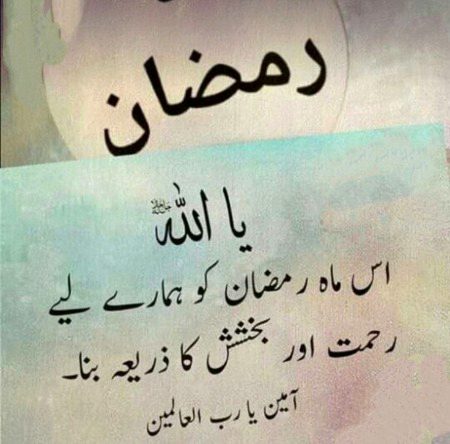 رمضان
یا اللہ ﷻ
اس ماہ رمضان کو ہمارے لیے
رحمت اور بخشش کا ذریعہ بنا۔
آمین یا رب العالمین